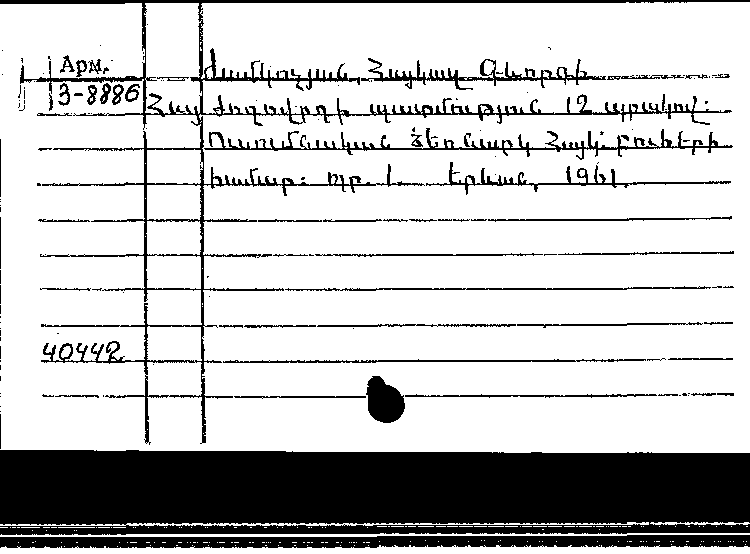 Арм.
3-8886
Ժամկոչյան, Հայկազ Գևորգի
Հայ ժողովրդի պատմություն 12 պրակով:
Ուսումնական ձեռնարկ Հայկ. բուհերի
համար: պր. 1. Երևան, 1961.
40442